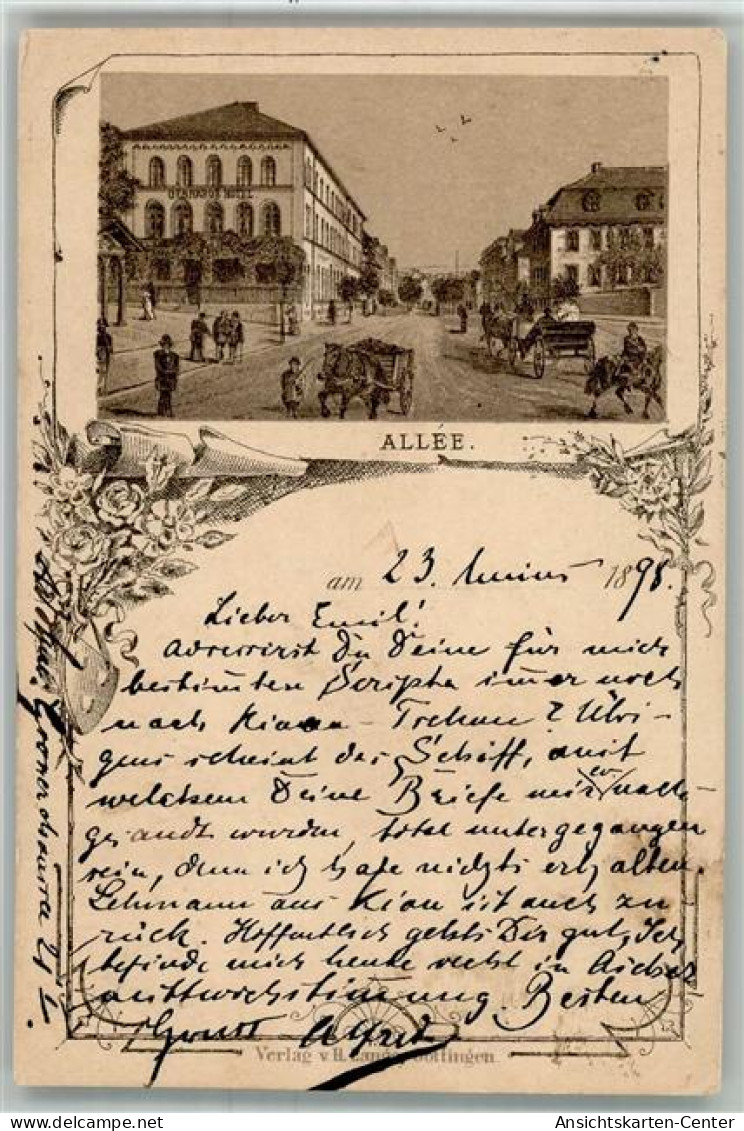 GEBHARDS HOTEL
ALLÉE.
am 23. 1898.
Lieber Emil!
Adressirst Du Deine für mich
bestimten Scripta imer noch
nach Kiau - Tschau? Übri-
gens scheint das Schiff, mit
welchem Deine Briefe mir nach-
gesandt wurden, total untergegangen
sein, denn ich habe nichts erhalten.
Lehmann aus Kiau ist auch zu-
rück. Hoffentlich gehts Dir gut, Ich
befinde mich heute recht in Ascher-
mittwochstimung. Besten
Gruss Alfred
Verlag v. H. Lange, Göttingen
Ansichtskarten-Center